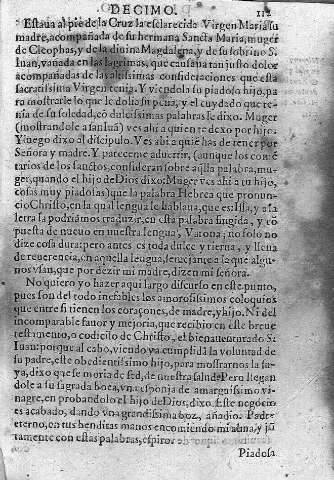 DECIMO. 112
Estaua al pie de la Cruz la esclarecida Virgen Maria su
madre, acompañada de su hermana Sancta Maria, muger
de Cleophas, y de la diuina Magdalena, y de su sobrino S.
Iuan, vañada en las lagrimas, que causaua tan justo dolor
acompañadas de las altissimas consideraciones que esta
sacratissima Virgen tenia. Y viendola su piadoso hijo, pa
ra mostrarle lo que le dolia su pena, y el cuydado que te-
nia de su soledad, cō dulcissimas palabras le dixo. Muger
(mostrandole a san Iuā) ves ahi a quien te dexo por hijo.
Y luego dixo al discipulo. Ves ahi a quien has de tener por
Señora y madre. Y pareceme aduertir, (aunque los comē
tarios de los sanctos consideran sobre aq̃lla palabra, mu-
ger, quando el hijo de Dios dixo: Muger ves ahi a tu hijo,
cosas muy piadosas) que la palabra Hebrea que pronun-
cio Christo, en la qual lengua le hablaua, que es: Issa, y a la
letra la podriamos traduzir, en esta palabra fingida, y cō
puesta de nueuo en nuestra lengua, Varona; no solo no
dize cosa dura: pero antes es toda dulce y tierna, y llena
de reuerencia, en aquella lengua, semejante a la que algu-
nos vsan, que por dezir mi madre, dizen mi señora.
No quiero yo hazer aqui largo discurso en este punto,
pues son del todo inefables los amorosissimos coloquios
que entre si tienen los coraçones, de madre, y hijo. Ni del
incomparable fauor y mejoria, que recibio en este breue
testamento, o codicilo de Christo, el bienauenturado S.
Iuan: porque al cabo, viendo ya cumplida la voluntad de
su padre, este obedientissimo hijo, para mostrarnos la su-
ya, dixo que se moria de sed, de nuestra salud. Pero llegan
dole a su sagrada boca, vna esponja de amarguissimo vi-
nagre, en probandolo el hijo de Dios, dixo. Este negocio
es acabado, y dando vna grandissima boz, añadio. Padre
eterno, en tus benditas manos encomiendo mi alma, y jū
tamente con estas palabras, espiro
Piadosa